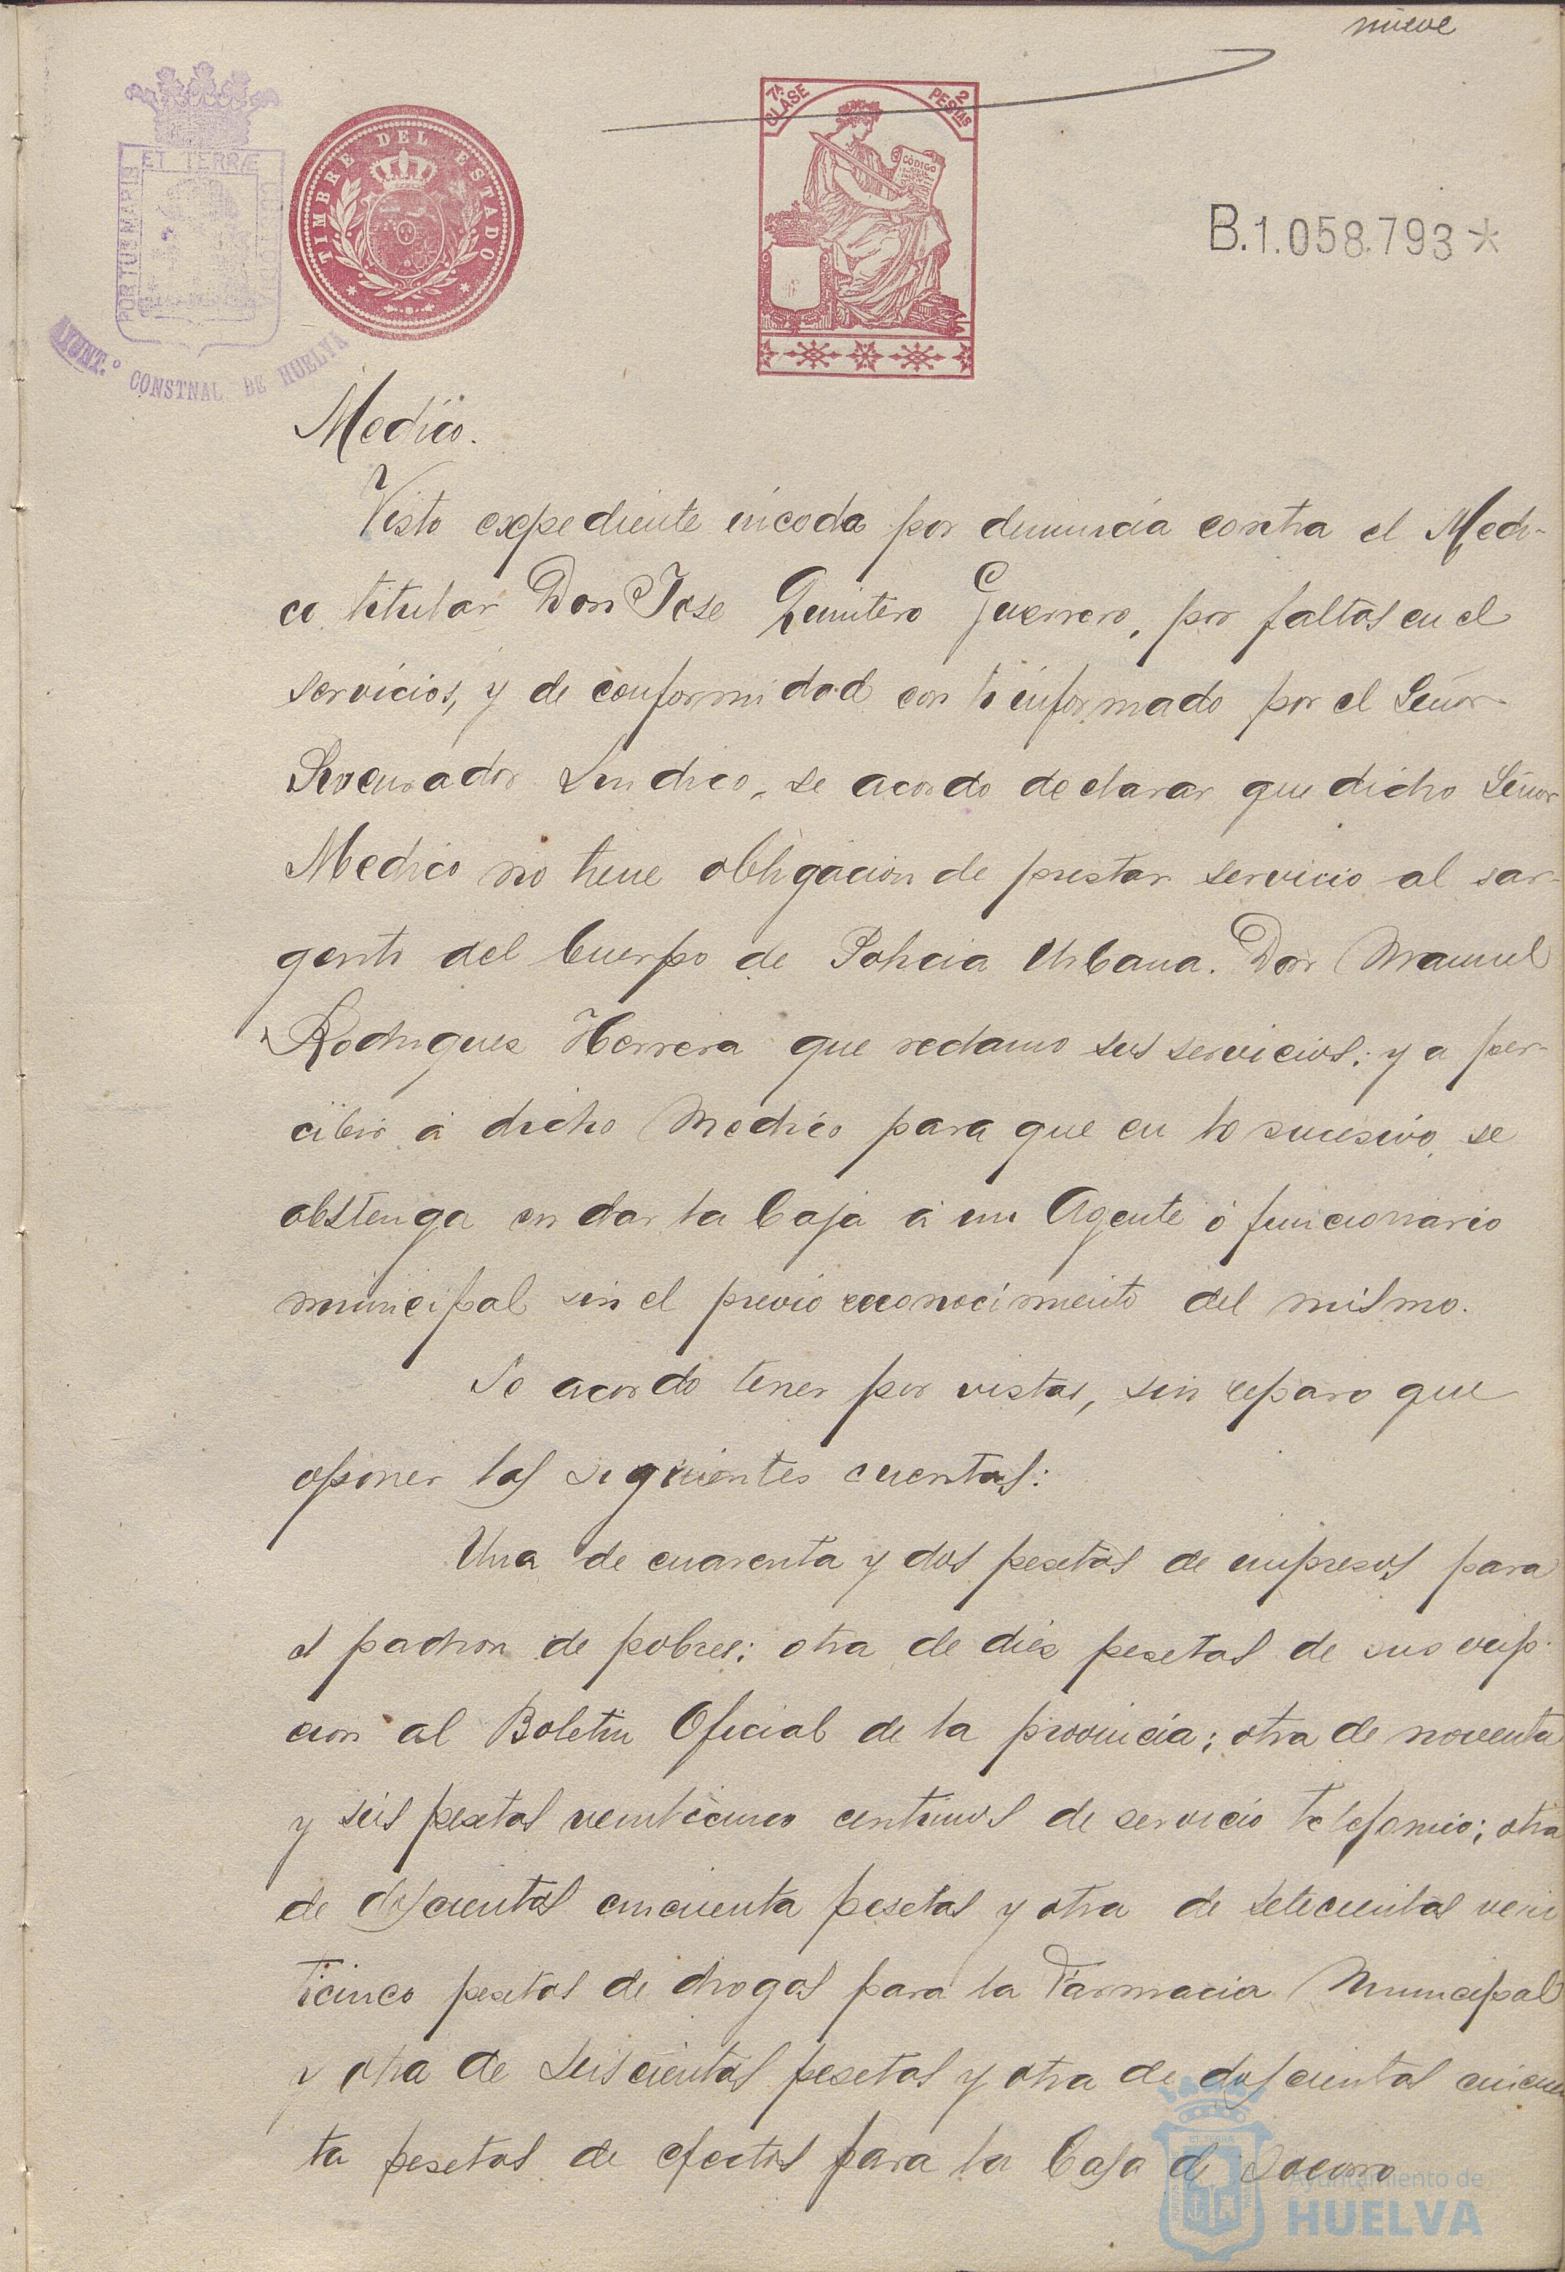 nueve
7ª CLASE
2 PESTAS
CÓDIGO
ET TERRÆ
PORTUS MARIS
TIMBRE DEL ESTADO
B.1.058.793*
AYUNT.º CONSTNAL DE HUELVA
Medico.
Visto expediente incoda por denuncia contra el Medi-
co titular Don Jose Quintero Guerrero, por faltas en el
servicios, y de conformidad con lo informado por el Señor
Procurador Sindico, se acordo declarar que dicho Señor
Medico no tiene obligacion de prestar servicio al sar-
gento del Cuerpo de Policia Urbana. Don Manuel
Rodriguez Herrera que reclamo sus servicios; y a per-
cibir á dicho Medico para que en lo sucesivo se
abstenga en dar la baja á un Agente ó funcionario
municipal sin el previo reconocimiento del mismo.
Se acordo tener por vistas, sin reparo que
oponer las siguientes cuentas:
Una de cuarenta y dos pesetas de impresos para
el padron de pobres; otra de diez pesetas de suscrip-
cion al Boletin Oficial de la provincia; otra de noventa
y seis pesetas veinticinco centimos de servicio telefonico; otra
de doscientas cincuenta pesetas y otra de setecientas vein
ticinco pesetas de drogas para la Farmacia Municipal
y otra de seiscientas pesetas y otra de doscientas cincuen
ta pesetas de efectos para la Casa de Socorro
Ayuntamiento de
HUELVA